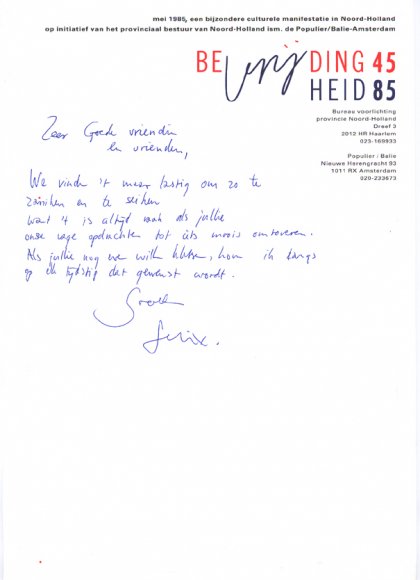 mei 1985, een bijzondere culturele manifestatie in Noord-Holland
op initiatief van het provinciaal bestuur van Noord-Holland ism. de Populier/Balie-Amsterdam
BEvrijDING 45
HEID 85
Bureau voorlichting
provincie Noord-Holland
Dreef 3
2012 HR Haarlem
023-169933
Populier / Balie
Nieuwe Herengracht 93
1011 RX Amsterdam
020-233673
Zeer Goede vriendin
en vrienden,
We vinden 't maar lastig om zo te
en te
want 't is altijd als jullie
onze vage opdrachten tot iets moois omtoveren.
Als jullie nog we willen, kom ik langs
op elk tijdstip dat gewenst wordt.
Groeten
Felix.